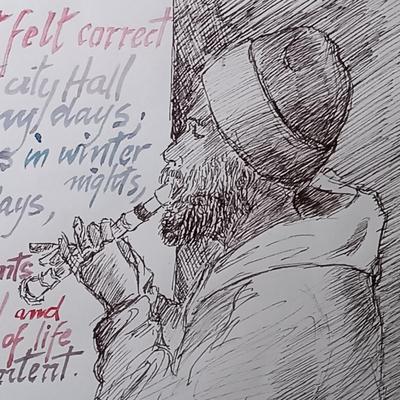 t felt correct
city Hall
ny days;
s in winter
nights,
ays,
nts
and
of life
ntent.